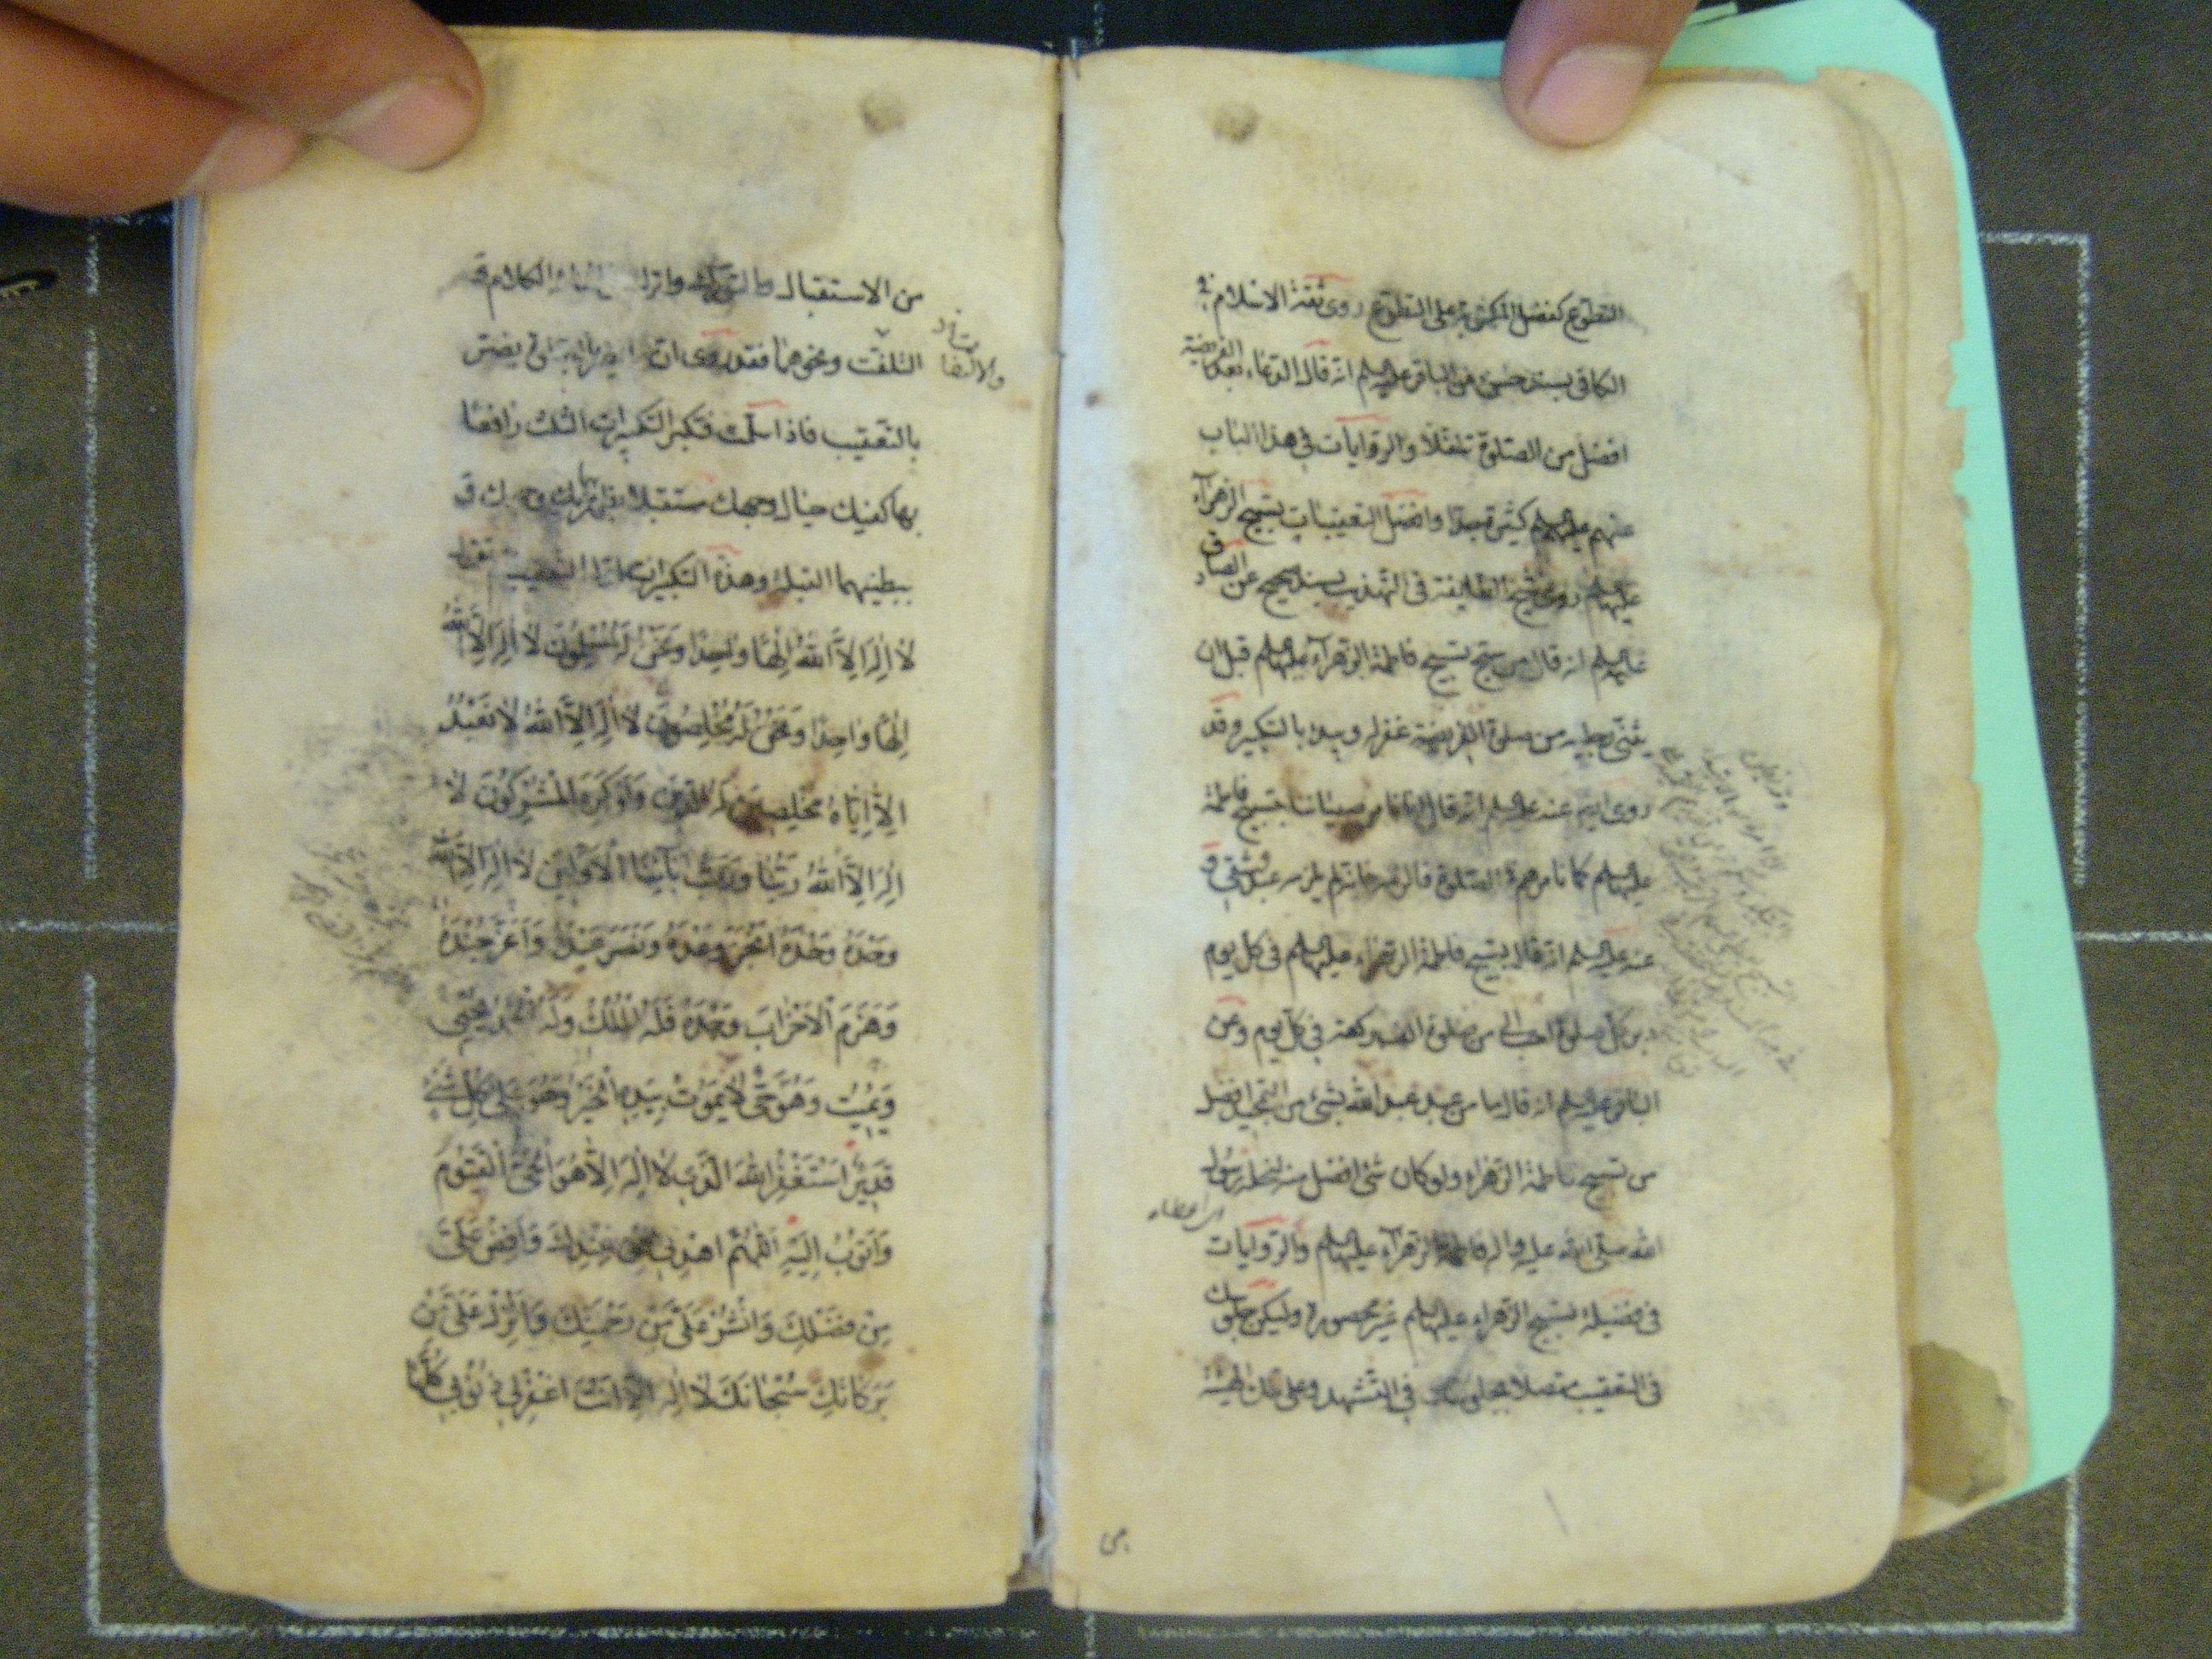 التطوع كفضل المكتوبة على التطوع روى ثقة الاسلام في
الكافي بسند حسن عن الباقر عليه السلم انه قال الدعاء بعد الفريضة
افضل من الصلوة تنفلا والروايات في هذا الباب
عنهم عليهم السلم كثيرة جدا وافضل التعقيبات تسبيح الزهراء
عليها السلم روى شيخ الطايفة في التهذيب بسند صحيح عن الصادق
عليه السلم انه قال من سبح تسبيح فاطمة الزهراء عليها السلم قبل ان
يثنى رجليه من صلوة الفريضة غفر له ويبدا بالتكبير وقد
روى ايضا عنه عليه السلم انه قال انا نامر صبياننا بتسبيح فاطمة
عليها السلم كما نامرهم بالصلوة فالزمه فانه لم يلزمه عبد فشقي و
عنه عليه السلم انه قال تسبيح فاطمة الزهراء عليها السلم في كل يوم
دبر كل صلوة احب الي من صلوة الف ركعة في كل يوم وعن
الباقر عليه السلم انه قال ما من عبد عبد الله بشيء من التمجيد افضل
من تسبيح فاطمة الزهراء ولو كان شئ افضل منه لنحله رسول
اي اعطاه
الله صلى الله عليه واله فاطمة الزهراء عليها السلم والروايات
في فضيلة تسبيح الزهراء عليها السلم غير محصورة وليكن جلوسك
في التعقيب متصلا بجلوسك في التشهد وعلى تلك الهيئة
من الاستقبال والتورك واترك الكلام
التلفت ونحوهما فقد روى ان يضر
بالتعقيب فاذا سلمت فكبر التكبيرات الثلث رافعا
بها كفيك حيال وجهك مستقبلا
ببطنيهما القبلة وهذه التكبيرات التعقيب
لَا اِلٰهَ اِلَّا اللهُ اِلٰهًا وٰاحِدًا وَنَحْنُ لَهُ مُسْلِمُونَ لَا اِلٰهَ اِلَّا اللهُ
اِلٰهًا وٰاحِدًا وَنَحْنُ لَهُ مُخْلِصُونَ لَا اِلٰهَ اِلَّا اللهُ لَا نَعْبُدُ
اِلَّا اِيَّاهُ مُخْلِصِينَ لَهُ الدِّينَ وَلَوْ كَرِهَ الْمُشْرِكُونَ لَا
اِلٰهَ اِلَّا اللهُ رَبُّنَا وَرَبُّ اٰبَائِنَا الْاَوَّلِينَ لَا اِلٰهَ اِلَّا اللهُ
وَحْدَهُ وَحْدَهُ اَنْجَزَ وَعْدَهُ وَنَصَرَ عَبْدَهُ وَاَعَزَّ جُنْدَهُ
وَهَزَمَ الْاَحْزَابَ وَحْدَهُ فَلَهُ الْمُلْكُ وَلَهُ الْحَمْدُ يُحْيِي
وَيُمِيتُ وَهُوَ حَيٌّ لَا يَمُوتُ بِيَدِهِ الْخَيْرُ وَهُوَ عَلٰى كُلِّ شَيْءٍ
قَدِيرٌ اَسْتَغْفِرُ اللهَ الَّذِي لَا اِلٰهَ اِلَّا هُوَ الْحَيُّ الْقَيُّومُ
وَاَتُوبُ اِلَيْهِ اَللّٰهُمَّ اهْدِنِي مِنْ عِنْدِكَ وَاَفِضْ عَلَيَّ
مِنْ فَضْلِكَ وَانْشُرْ عَلَيَّ مِنْ رَحْمَتِكَ وَاَنْزِلْ عَلَيَّ مِنْ
بَرَكَاتِكَ سُبْحَانَكَ لَا اِلٰهَ اِلَّا اَنْتَ اغْفِرْ لِي ذُنُوبِي كُلَّهَا